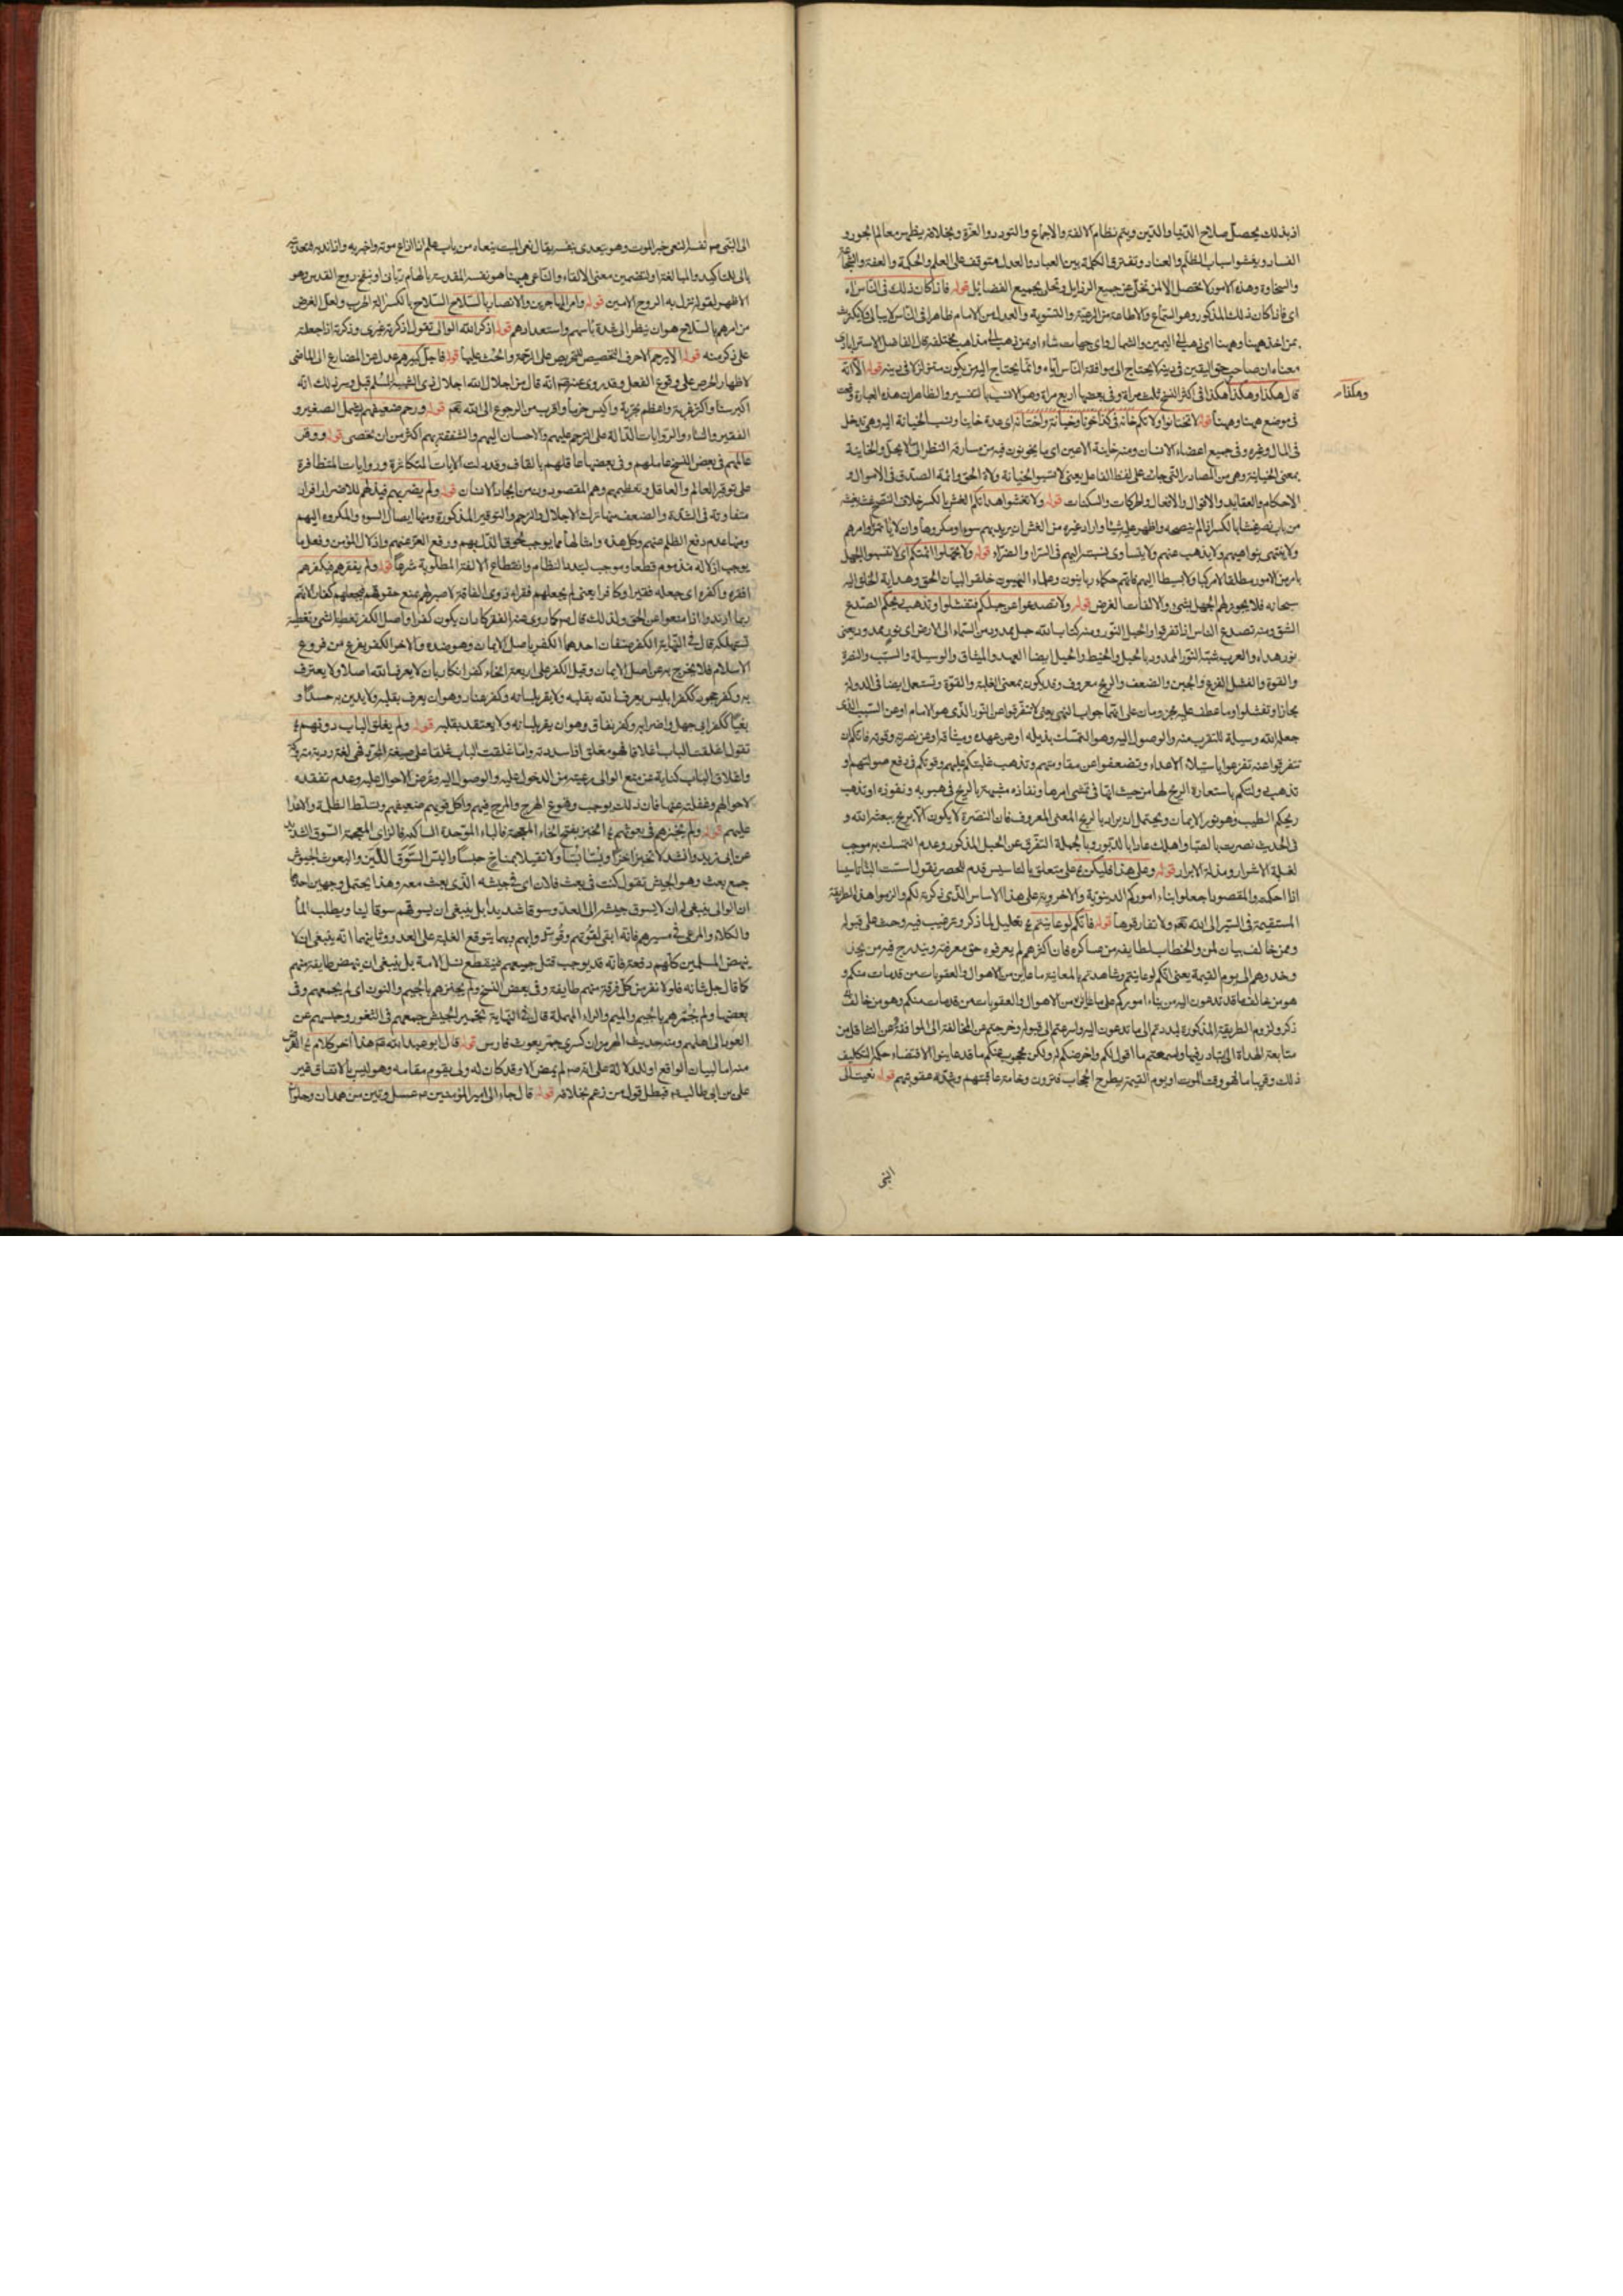 اذ بذلك يحصل صلاح الدنيا والدين ويتم نظام الالفة والاجماع والتودد والعزة وبخلافه يظهر من معالم الجور و
الفساد ويفشوا اسباب الظلم والعناد وتفترق الكلمة بين العباد والعدل متوقف على العلم والحكمة والعفة والشجاعة
والسخاوة وهذه الامور لا تحصل الا لمن تخلى عن جميع الرذايل وتحلى بجميع الفضايل قوله فاذا كان ذلك في الناس اه
اى فاذا كان ذلك المذكور وهو السماع والاطاعة من الرعية والتسوية والعدل من الامام ظاهرا في الناس لا يبالى ولا يكترث
بمن اخذ ههنا وههنا اى ذهب الى اليمين والشمال واى جهات شاء او بمن ذهب الى مذاهب مختلفة قال الفاضل الاسترابادى
معناه ان صاحب حق اليقين في دينه لا يحتاج الى موافقة الناس اياه وانما يحتاج اليه من يكون متزلزلا في دينه قوله الا انه
قال هكذا وهكذا وهكذا في اكثر النسخ ثلث مراة وفي بعضها اربع مراة وهو الانسب بالتفسير والظاهر ان هذه العبارة وقعت
وهكذا
في موضع ههنا وههنا قوله لا تختانوا ولاتكم خانه في كذا خونا وخيانة واختانه اى عده خاينا ونسب الخيانة اليه وهي تدخل
في المال وغيره وفي جميع اعضاء الانسان ومنه خاينة الاعين اى ما يخونون فيه من مسارقة النظر الى ما لا يحل والخاينة
بمعنى الخيانة وهي من المصادر التي جاءت على لفظ الفاعل يعنى لا تنسبوا الخيانة ولاة الحق وائمة الصدق في الاموال و
الاحكام والعقايد والاقوال والافعال والحركات والسكنات قوله ولا تغشوا هداتكم الغش بالكسر خلاف النصح غشه يغشه
من باب نصر غشا بالكسر اذا لم ينصحه واظهر عليه شيئا واراد غيره من الغش ان يريد بهم سوءا ومكروها وان لا ياتمر باوامرهم
ولا ينتهى بنواهيهم ولا يذهب عنهم ولا يتساوى نسبته اليهم في السراء والضراء قوله ولا تجهلوا ائمتكم اى لا تنسبوا الجهل
بامر من الامور مطلقا لا مركبا ولا بسيطا اليهم فانهم حكماء ربانيون وعلماء الهيون خلقوا لبيان الحق وهداية الخلق اليه
سبحانه فلا يجوز لهم الجهل بشيء والالفات الغرض قوله ولا تصدعوا عن حبلكم فتفشلوا وتذهب ريحكم الصدع
الشق ومنه تصدع الناس اذا تفرقوا والحبل النور ومنه كتاب الله حبل ممدود من السماء الى الارض اى نور ممدود يعنى
نور هداه والعرب شبه النور الممدود بالحبل والخيط والحبل ايضا العهد والميثاق والوسيلة والسبب والنصرة
والقوة والفشل الفزع والجبن والضعف والريح معروف وقد يكون بمعنى الغلبة والقوة وتستعمل ايضا في الدولة
مجازا وتفشلوا وما عطف عليه مجزومان على انهما جواب النهى يعنى لا تتفرقوا عن النور الذى هو الامام او عن السبب الذى
جعله الله وسيلة للتقرب منه والوصول اليه وهو التمسك بذيله او عن عهده وميثاقه او عن نصرته وقوته فانكم ان
تتفرقوا عنه تفزعوا باستيلاء الاعداء وتضعفوا عن مقاومتهم وتذهب غلبتكم عليهم وقوتكم في دفع صولتهم او
تذهب دولتكم باستعارة الريح لها من حيث انها في تمشى امرها ونفاذه مشبهة بالريح في هبوبه ونفوذه او تذهب
ريحكم الطيب وهو نور الايمان ويحتمل ان يراد بالريح المعنى المعروف فان النصرة لا يكون الا بريح يبعثه الله و
في الحديث نصرت بالصبا واهلك عاد بالدبور وبالجملة التفرق عن الحبل المذكور وعدم التمسك به موجب
لغلبة الاشرار ومذلة الابرار قوله وعلى هذا فليكن على متعلق بالتاسيس قدم للحصر تقول اسست البناء تاسيسا
اذا احكمته والمقصود اجعلوا بناء اموركم الدنيوية والاخروية على هذا الاساس الذى ذكرته لكم والزموا هذه الطريقة
المستقيمة في السير الى الله تعالى ولا تفارقوها قوله فانكم لو عاينتم تعليل لما ذكر وترغيب فيه وحث على قبوله
ومن خالف بيان لمن والخطاب لطايفة من عساكره فان اكثرهم لم يعرفوه حق معرفته ويندرج فيه من
وحذرهم الى يوم القيمة يعنى انكم لو عاينتم وشاهدتم بالمعاينة ما عاين من الاهوال والعقوبات من قد مات منكم و
هو من خالف ما قد تدعون اليه من بناء اموركم على ما من الاهوال والعقوبات من قد مات منكم وهو من خالف
ذكر ولزوم الطريقة المذكورة لبدرتم الى ما تدعون اليه واسرعتم الى قبوله وخرجتم عن المخالفة الى الموافقة وعن التثاقل من
متابعة الهداة الى التبادر فيها ولسمعتم ما اقول لكم واعرضكم له ولكن محجوب عنكم ما قد عاينوا لاقتضاء حكمة التكليف
ذلك وقريبا ما الى وقت الموت او يوم القيمة يطرح الحجاب فترون وخامة عاقبتهم وشدة عقوبتهم قوله نعيت الى
النبى
الى النبى ص نفسه النعى خبر الموت وهو يتعدى بنفسه يقال نعى الميت ينعاه من باب علم اذا اذاع موته واخبر به واذا ندبه فتعديته
بالى للتاكيد والمبالغة او لتضمين معنى الالقاء والناعى ههنا هو نفسه المقدسة بالهام ربانى او بنفخ روح القدس وهو
الاظهر لقوله نزل به الروح الامين قوله وامر المهاجرين والانصار بالسلاح السلاح بالكسر الة الحرب ولعل الغرض
من امرهم بالسلاح هو ان ينظر الى شدة باسهم واستعدادهم قوله اذكر الله الوالى تقول اذكرته غيرى وذكرته اذا جعلته
على ذكر منه قوله الا يرحم الا حرف التحضيض للتحريص على الرحمة والحث عليها قوله فاجل كبيرهم عدل عن المضارع الى الماضى
لاظهار الحرص على وقوع الفعل وقد روى عنه ص انه قال من اجلال الله اجلال ذى الشيبة المسلم قيل وسر ذلك انه
اكبر سنا واكثر قربة واعظم تجربة واكيس حزبا واقرب من الرجوع الى الله تعالى قوله ورحم ضعيفهم يشمل الصغير و
الفقير والنساء والروايات الدالة على الترحم عليهم والاحسان اليهم والشفقة بهم اكثر من ان تحصى قوله ووقر
عالمهم في بعض النسخ عاملهم وفي بعضها عاقلهم بالقاف وقد دلت الايات المتكاثرة وروايات المتظافرة
على توقير العالم والعاقل وتعظيمهم وهم المقصودون من ايجاد الانسان قوله ولم يضر بهم فيذلهم للاضرار افراد
متفاوتة في الشدة والضعف منها ترك الاجلال والترحم والتوقير المذكورة ومنها ايصال السوء والمكروه اليهم
ومنها عدم دفع الظلم عنهم وكل هذه وامثالها مما يوجب لحوق الذل بهم ورفع العز عنهم واذلال المؤمن وفعل ما
يوجب اذلاله مذموم قطعا وموجب لتبدد النظام وانقطاع الالفة المطلوبة شرعا قوله ولم يفقرهم فيكفرهم
افقره واكفره اى جعله فقيرا وكافرا يعنى لم يجعلهم فقراء ذوى الفاقة لا صبر لهم بمنع حقوقهم فيجعلهم كفارا لانهم
ربما ارتدوا اذا منعوا عن الحق ولذلك قال ص كما روى عنه الفقر كاد ان يكون كفرا واصل الكفر تغطية الشيء تغطية
تستهلكه قال في النهاية الكفر صنفان احدهما الكفر باصل الايمان وهو ضده والاخر الكفر بفرع من فروع
الاسلام فلا يخرج به عن اصل الايمان وقيل الكفر على اربعة انحاء كفر انكار بان لا يعرف الله اصلا ولا يعترف
به وكفر جحود ككفر ابليس يعرف الله بقلبه ولا يقر بلسانه وكفر عناد وهو ان يعرف بقلبه ولا يدين به حسدا و
بغيا ككفر ابى جهل واضرابه وكفر نفاق وهو ان يقر بلسانه ولا يعتقد بقلبه قوله ولم يغلق الباب دونهم
تقول اغلقت الباب اغلاقا فهو مغلق اذا سددته واما غلقت الباب غلقا على صيغة المجرد فهى لغة ردية متروكة
واغلاق الباب كناية عن منع الوالى رعيته من الدخول عليه والوصول اليه وعرض الاحوال عليه وعدم تفقده
لاحوالهم وغفلته عنها فان ذلك يوجب وقوع الهرج والمرج فيهم واكل قويهم ضعيفهم وتسلط الظلمة والاعداء
عليهم قوله ولم يخبزهم في بعوثهم الخبز بفتح الخاء المعجمة فالباء الموحدة الساكنة فالزاى المعجمة السوق الشديد
عن ابى زيد وانشد لا تخبزا خبزا وبسا بسا ولا تطيلا بمناخ حبسا والبس السوق اللين والبعوث الجيوش
جمع بعث وهو الجيش تقول كنت في بعث فلان اى في جيشه الذى بعث معه وهذا يحتمل وجهين احدهما
ان الوالى ينبغى له ان لا يسوق جيشه الى العدو سوقا شديدا بل ينبغى ان يسوقهم سوقا لينا ويطلب الماء
والكلاء والمرعى في مسيرهم فانه ابقى لقوتهم وقوة دوابهم وبهما يتوقع الغلبة على العدو وثانيهما انه ينبغى ان لا
ينهض المسلمين كلهم دفعة فانه قد يوجب قتل جميعهم فينقطع نسل الامة بل ينبغى ان ينهض طايفة منهم
كما قال جل شانه فلولا نفر من كل فرقة منهم طايفة وفي بعض النسخ ولم يجنزهم بالجيم والنون اى لم يجمعهم وفى
بعضها ولم يجمرهم بالجيم والميم والراء المهملة قال في النهاية تجمير الجيش جمعهم في الثغور وحبسهم عن
العود الى اهلهم ومنه حديث الهرمزان كسرى جمر بعوث فارس قوله قال ابو عبد الله ع هذا اخر كلام
منه اما لبيان الواقع او للدلالة على انه ص لم يمض الا وقد كان له ولى يقوم مقامه وهو ليس بالاتفاق غير
على بن ابى طالب ع فبطل قول من زعم بخلافه قوله قال جاء الى امير المؤمنين ع عسل وتين من همدان وحلوان